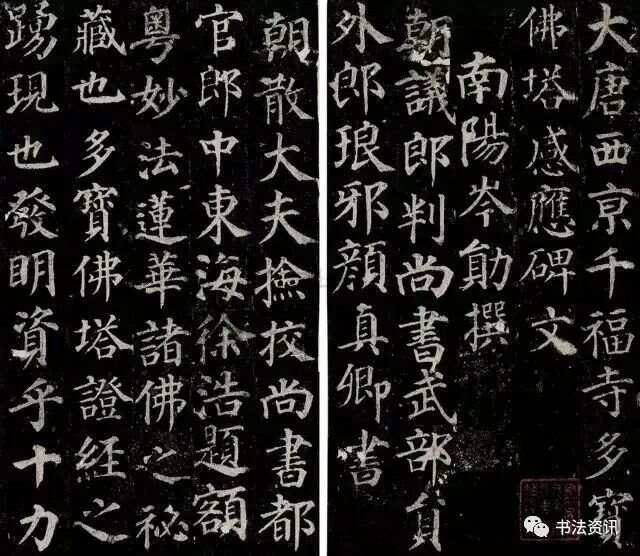 大唐西京千福寺多寶
佛塔感應碑文
南陽岑勛撰
朝議郎判尚書武部員
外郎琅邪顏真卿書
朝散大夫撿挍尚書都
官郎中東海徐浩題額
粵妙法蓮華諸佛之祕
藏也多寶佛塔證經之
踴現也發明資乎十力
书法资讯